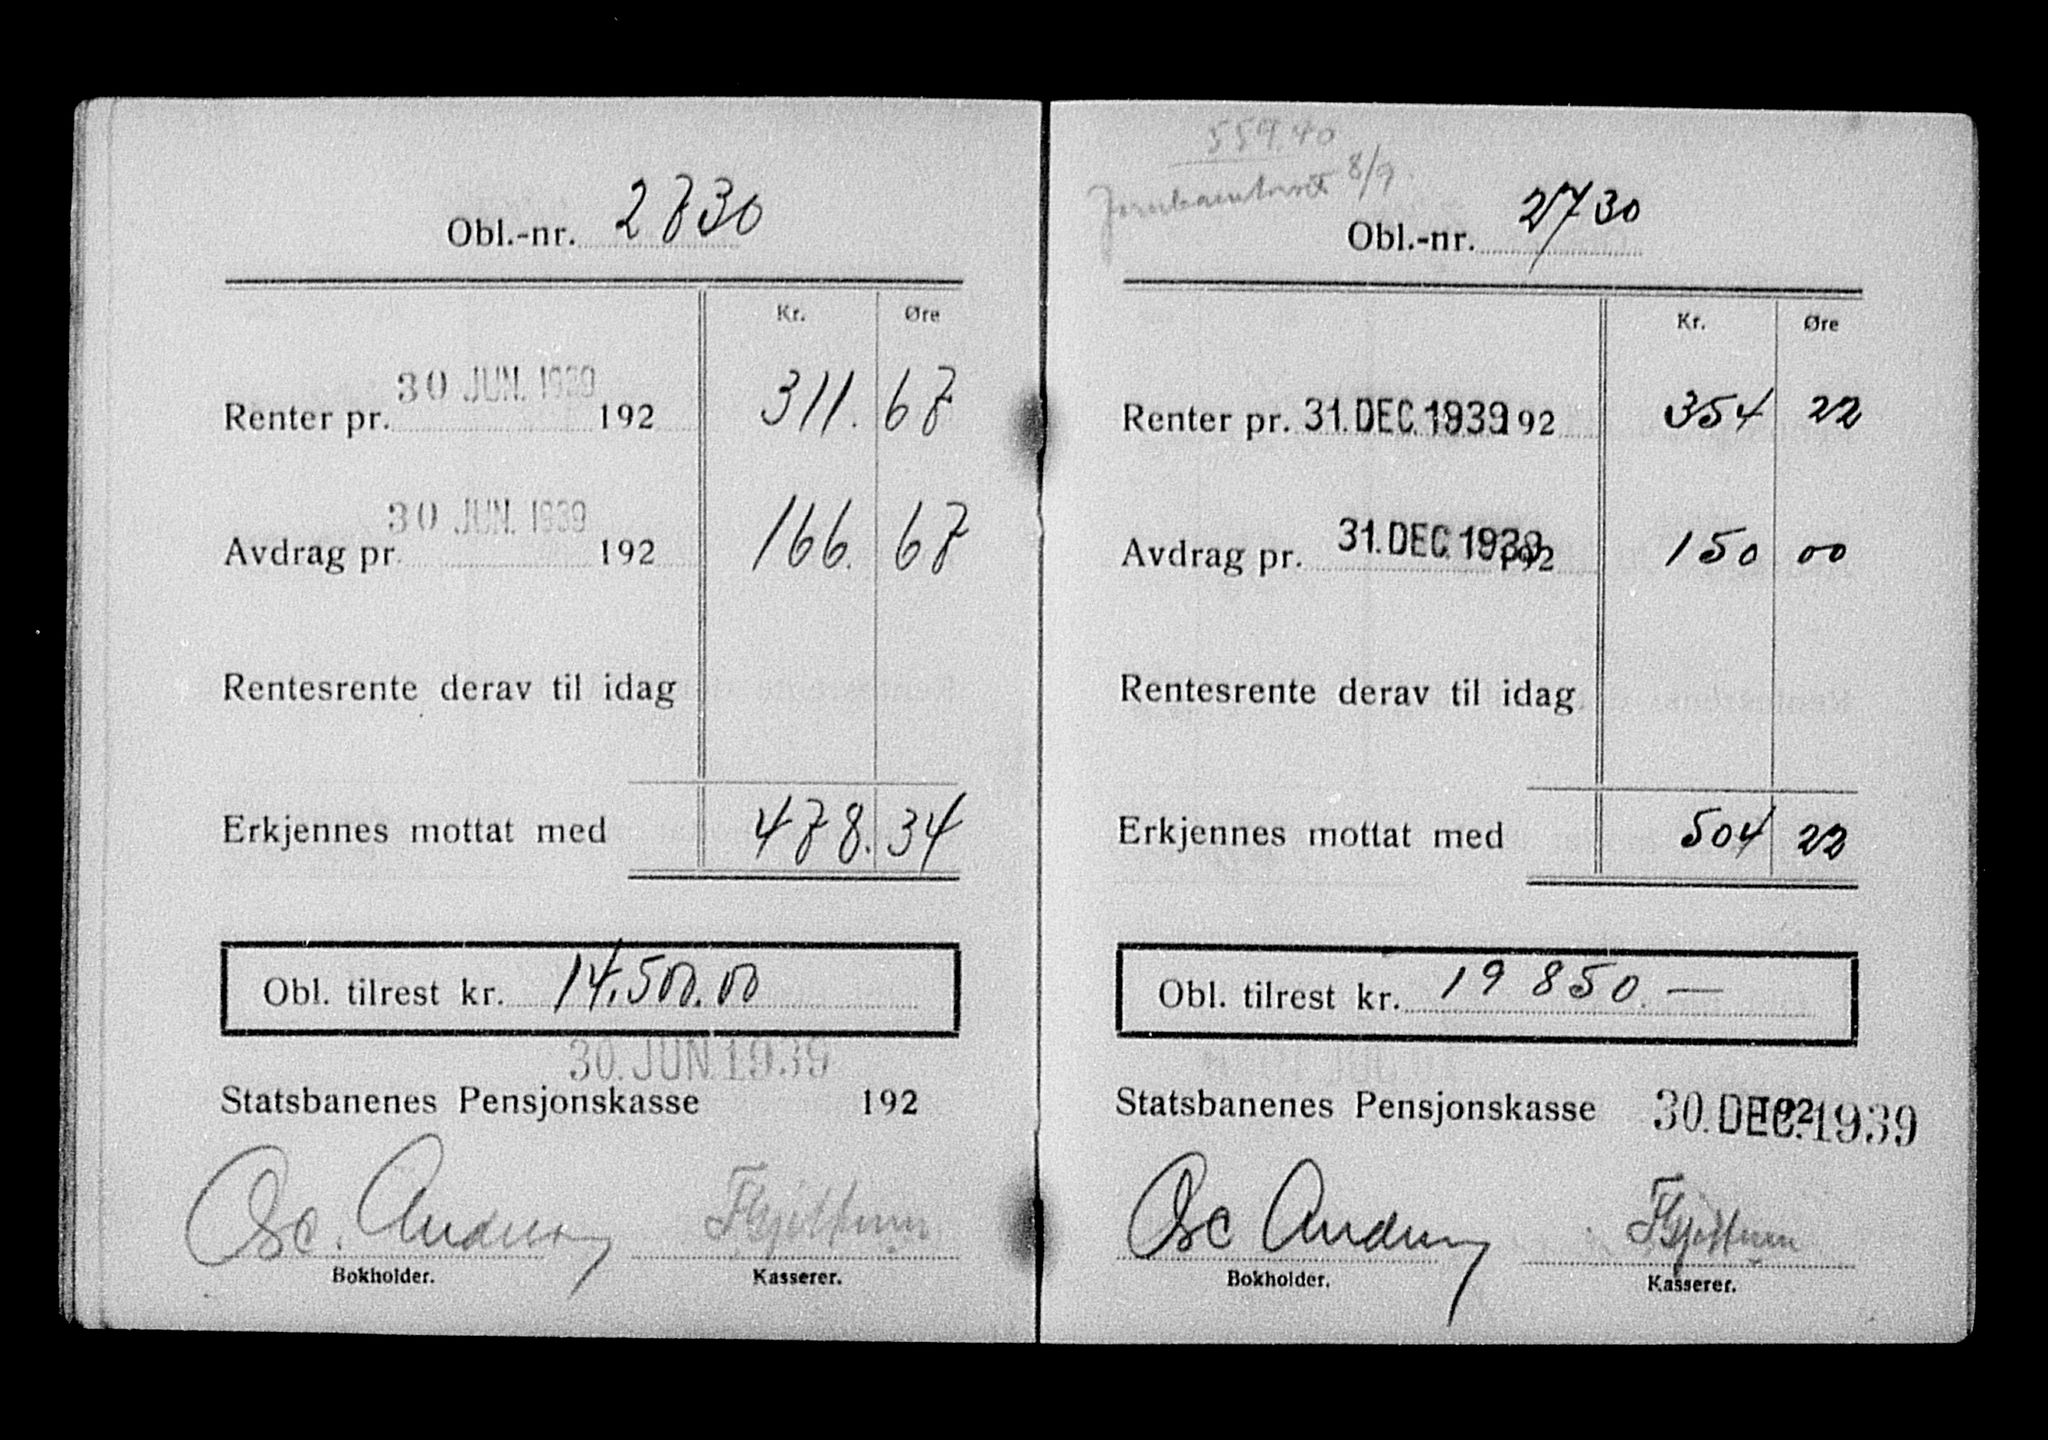 Obl.-nr. 2730
Kr. Øre
Renter pr. 30 JUN. 1939 192 311. 67
Avdrag pr. 30 JUN. 1939 192 166. 67
Rentesrente derav til idag
Erkjennes mottat med 478. 34
Obl. tilrest kr. 14.500.00
30. JUN. 1939
Statsbanenes Pensjonskasse 192
Osc. Andersen
Bokholder. Kasserer.
559.40
8/9.
Obl.-nr. 2730
Kr. Øre
Renter pr. 31. DEC. 1939 192 354 22
Avdrag pr. 31. DEC. 1939 192 150 00
Rentesrente derav til idag
Erkjennes mottat med 504 22
Obl. tilrest kr. 19 850. —
Statsbanenes Pensjonskasse 192 30. DEC. 1939
Osc Andersen
Bokholder. Kasserer.